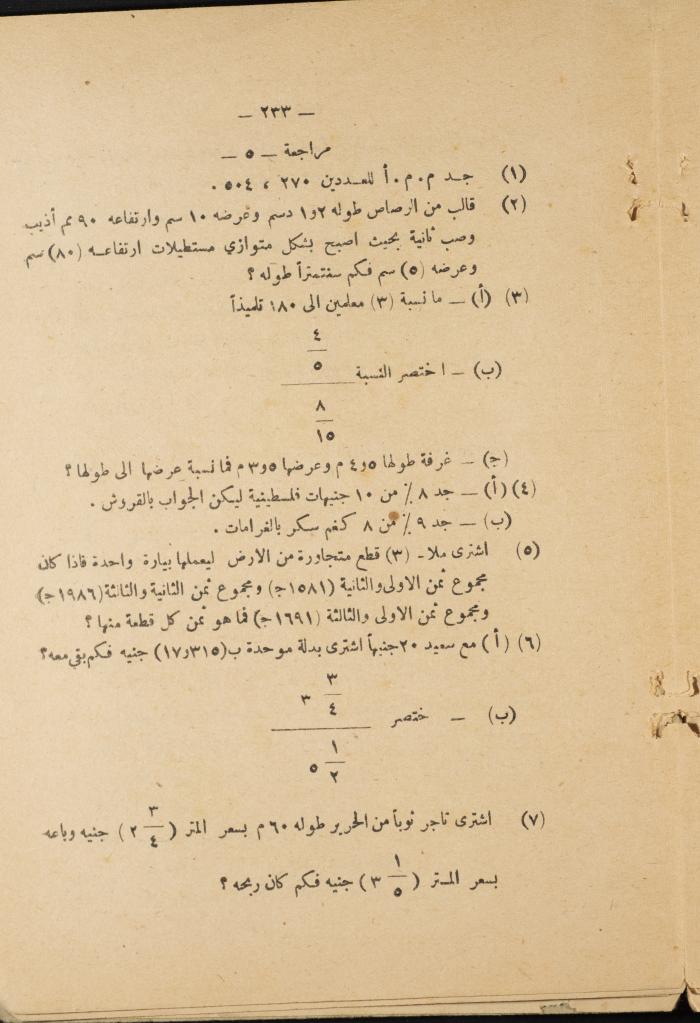 — ٢٣٣ —
مراجعة — ٥ —
(١) جد م . م . أ للعددين ٢٧٠ ، ٥٠٤ .
(٢) قالب من الرصاص طوله ٢و١ دسم وعرضه ١٠ سم وارتفاعه ٩٠ مم أذيب
وصب ثانية بحيث اصبح بشكل متوازي مستطيلات ارتفاعه (٨٠) سم
وعرضه (٥) سم فكم سنتمتراً طوله ؟
(٣) (أ) — ما نسبة (٣) معلمين الى ١٨٠ تلميذاً
٤
—
٥
(ب) — اختصر النسبة ــــــــ
٨
—
١٥
(ج) — غرفة طولها ٥و٤ م وعرضها ٥و٣ م فما نسبة عرضها الى طولها ؟
(٤) (أ) — جد ٨ ٪ من ١٠ جنيهات فلسطينية ليكن الجواب بالقروش .
(ب) — جد ٩ ٪ من ٨ كغم سكر بالغرامات .
(٥) اشترى ملا- (٣) قطع متجاورة من الارض ليعملها بيارة واحدة فاذا كان
مجموع ثمن الاولى والثانية (١٥٨١ ج) ومجموع ثمن الثانية والثالثة (١٩٨٦ ج)
ومجموع ثمن الاولى والثالثة (١٦٩١ ج) فما هو ثمن كل قطعة منها ؟
(٦) (أ) مع سعيد ٢٠ جنيهاً اشترى بدلة موحدة ب (٣١٥و١٧) جنيه فكم بقي معه ؟
٣
— ٣
٤
(ب) — ختصر ــــــــ
١
— ٥
٢
(٧) اشترى تاجر ثوباً من الحرير طوله ٦٠ م بسعر المتر (٣/٤ ٢) جنيه وباعه
بسعر المتر (١/٥ ٣) جنيه فكم كان ربحه ؟